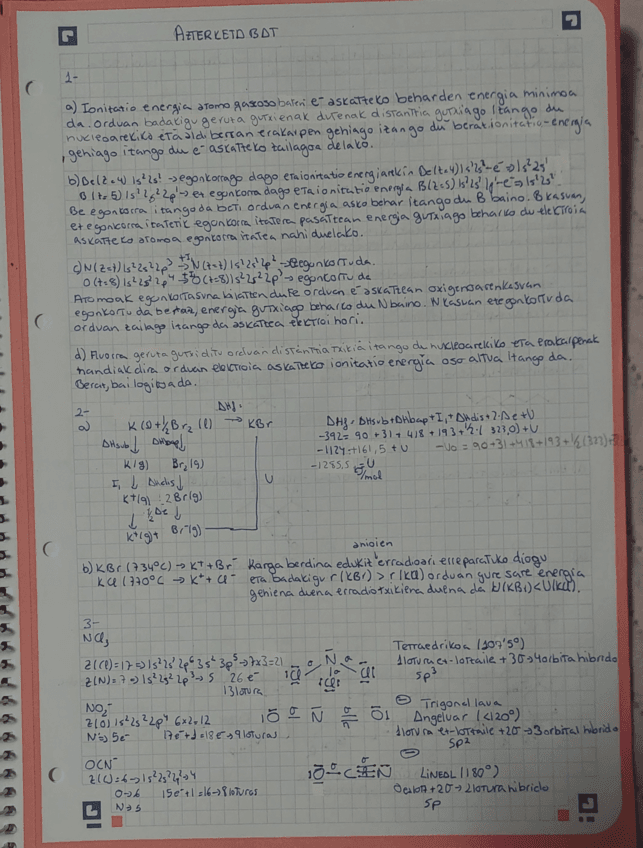 AZTERKETA BAT
1-
a) Ionitatio energia atomo gaxosobateni e⁻ askatteko beharden energia minimoa
da. orduan badakigu geruta gutxienak dutenak distantzia gutxiago itango du
nucleoarekiko eta aldi berean erakarpen gehiago itango du beraz ionitatio-energia
gehiago itango du e⁻ askatteko tailagoa delako.
b) Be(z=4) 1s²2s² → egonkorrago dago eta ionitatio energiarekin Be(z=4) 1s²2s² -e⁻ ⇒ 1s²2s¹
B(z=5) 1s² 2s² 2p¹ → ez egonkorra dago eta ionitatio energia B(z=5) 1s²2s² 1p¹ -e⁻ ⇒ 1s²2s²
Be egonkorra itango da beti orduan energia asko behar itango du B baino. B kasuan,
ez egonkorra itatetik egonkorra itatera pasatzean energia gutxiago beharko du elektroia
askatteko atomoa egonkorra itatea nahi duelako.
c) N(z=7) 1s²2s²2p³ → N(z=7) 1s²2s²2p² → Ezegonkortu da.
O(z=8) 1s²2s²2p⁴ → O(z=8) 1s²2s²2p³ → egonkortu da
Atomoak egonkortasuna bilatzen dute orduan e⁻ askattean oxigenoaren kasuan
egonkortu da beraz, energia gutxiago beharko du N baino. N kasuan ezegonkortu da
orduan tailago itango da askatzea elektroi hori.
d) Fluorra geruta gutxi ditu orduan distantzia txikia itango du nukleoarekiko eta erakarpenak
handiak dira orduan elektroia askatteko ionitatio energia oso altua itango da.
Beraz, bai logikoa da.
2-
a) K(s) + ½ Br₂ (l) → KBr
ΔHf.
ΔHsub ΔHbap
K(g) Br₂(g)
I₁ ΔHdis
K⁺(g) 2Br(g)
½ Δe
K⁺(g) + Br⁻(g)
U
ΔHf = ΔHsub + ΔHbap + I₁ + ΔHdis + 2·Δe + U
-392 = 90 + 31 + 418 + 193 + ½·(-323,0) + U
b) KBr (734°C) → K⁺ + Br⁻ Karga berdina edukiz anioien erradioari erreparatuko diogu
KCl (770°C → K⁺ + Cl⁻ eta badakigu r(KBr) > r(KCl) orduan gure sare energia
gehiena duena erradio txikiena duena da U(KBr) < U(KCl).
3-
NCl₃
Z(Cl) = 17 ⇒ 1s²2s²2p⁶3s²3p⁵ → 7x3=21
Z(N) = 7 ⇒ 1s²2s²2p³ → 5 26 e⁻
13 lotura
Cl N Cl
Cl
Tetraedrikoa (107'5°)
1 lotura ez-lotzaile + 3σ → 4 orbita hibrido
sp³
NO₂⁻
Z(O) 1s²2s²2p⁴ 6x2=12
N ⇒ 5e⁻ 17e⁻+1=18e⁻ → 9 loturas
O σ N σ π O
Trigonal laua
Angeluar (<120°)
1 lotura ez-lotzaile + 2σ → 3 orbital hibrido
sp²
OCN⁻
Z(C) = 6 → 1s²2s²2p² → 4
O → 6 15e⁻ + 1 = 16 → 8 loturas
N → 5
O σ C N
LINEAL (180°)
sp